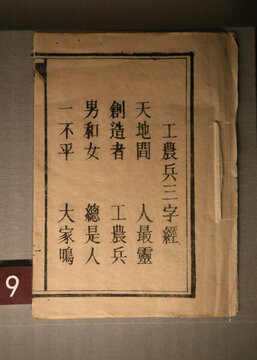 工農兵三字經
天地間 人最靈
創造者 工農兵
男和女 總是人
一不平 大家鳴
9